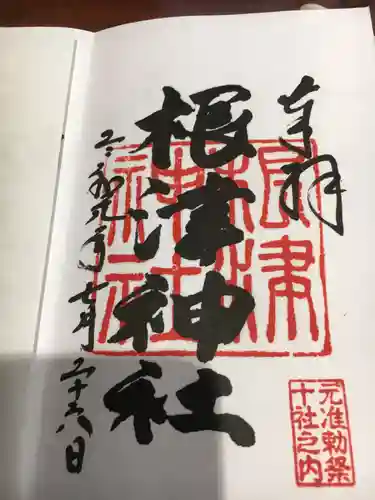 奉拝
根津神社
令和元年七月二十六日
根津神社
元准勅祭
十社之内